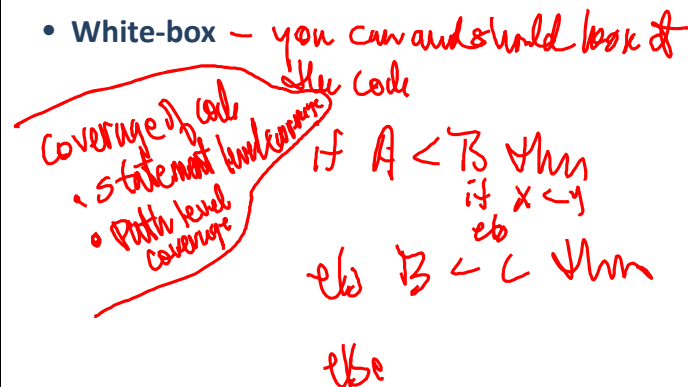 • White-box – you can and should look at
the code
coverage of code
• statement level coverage
• Path level
coverage
if A < B then
if x < y
else
else B < C then
else